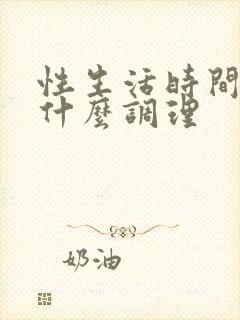 性生活時間
什麼調理
奶油